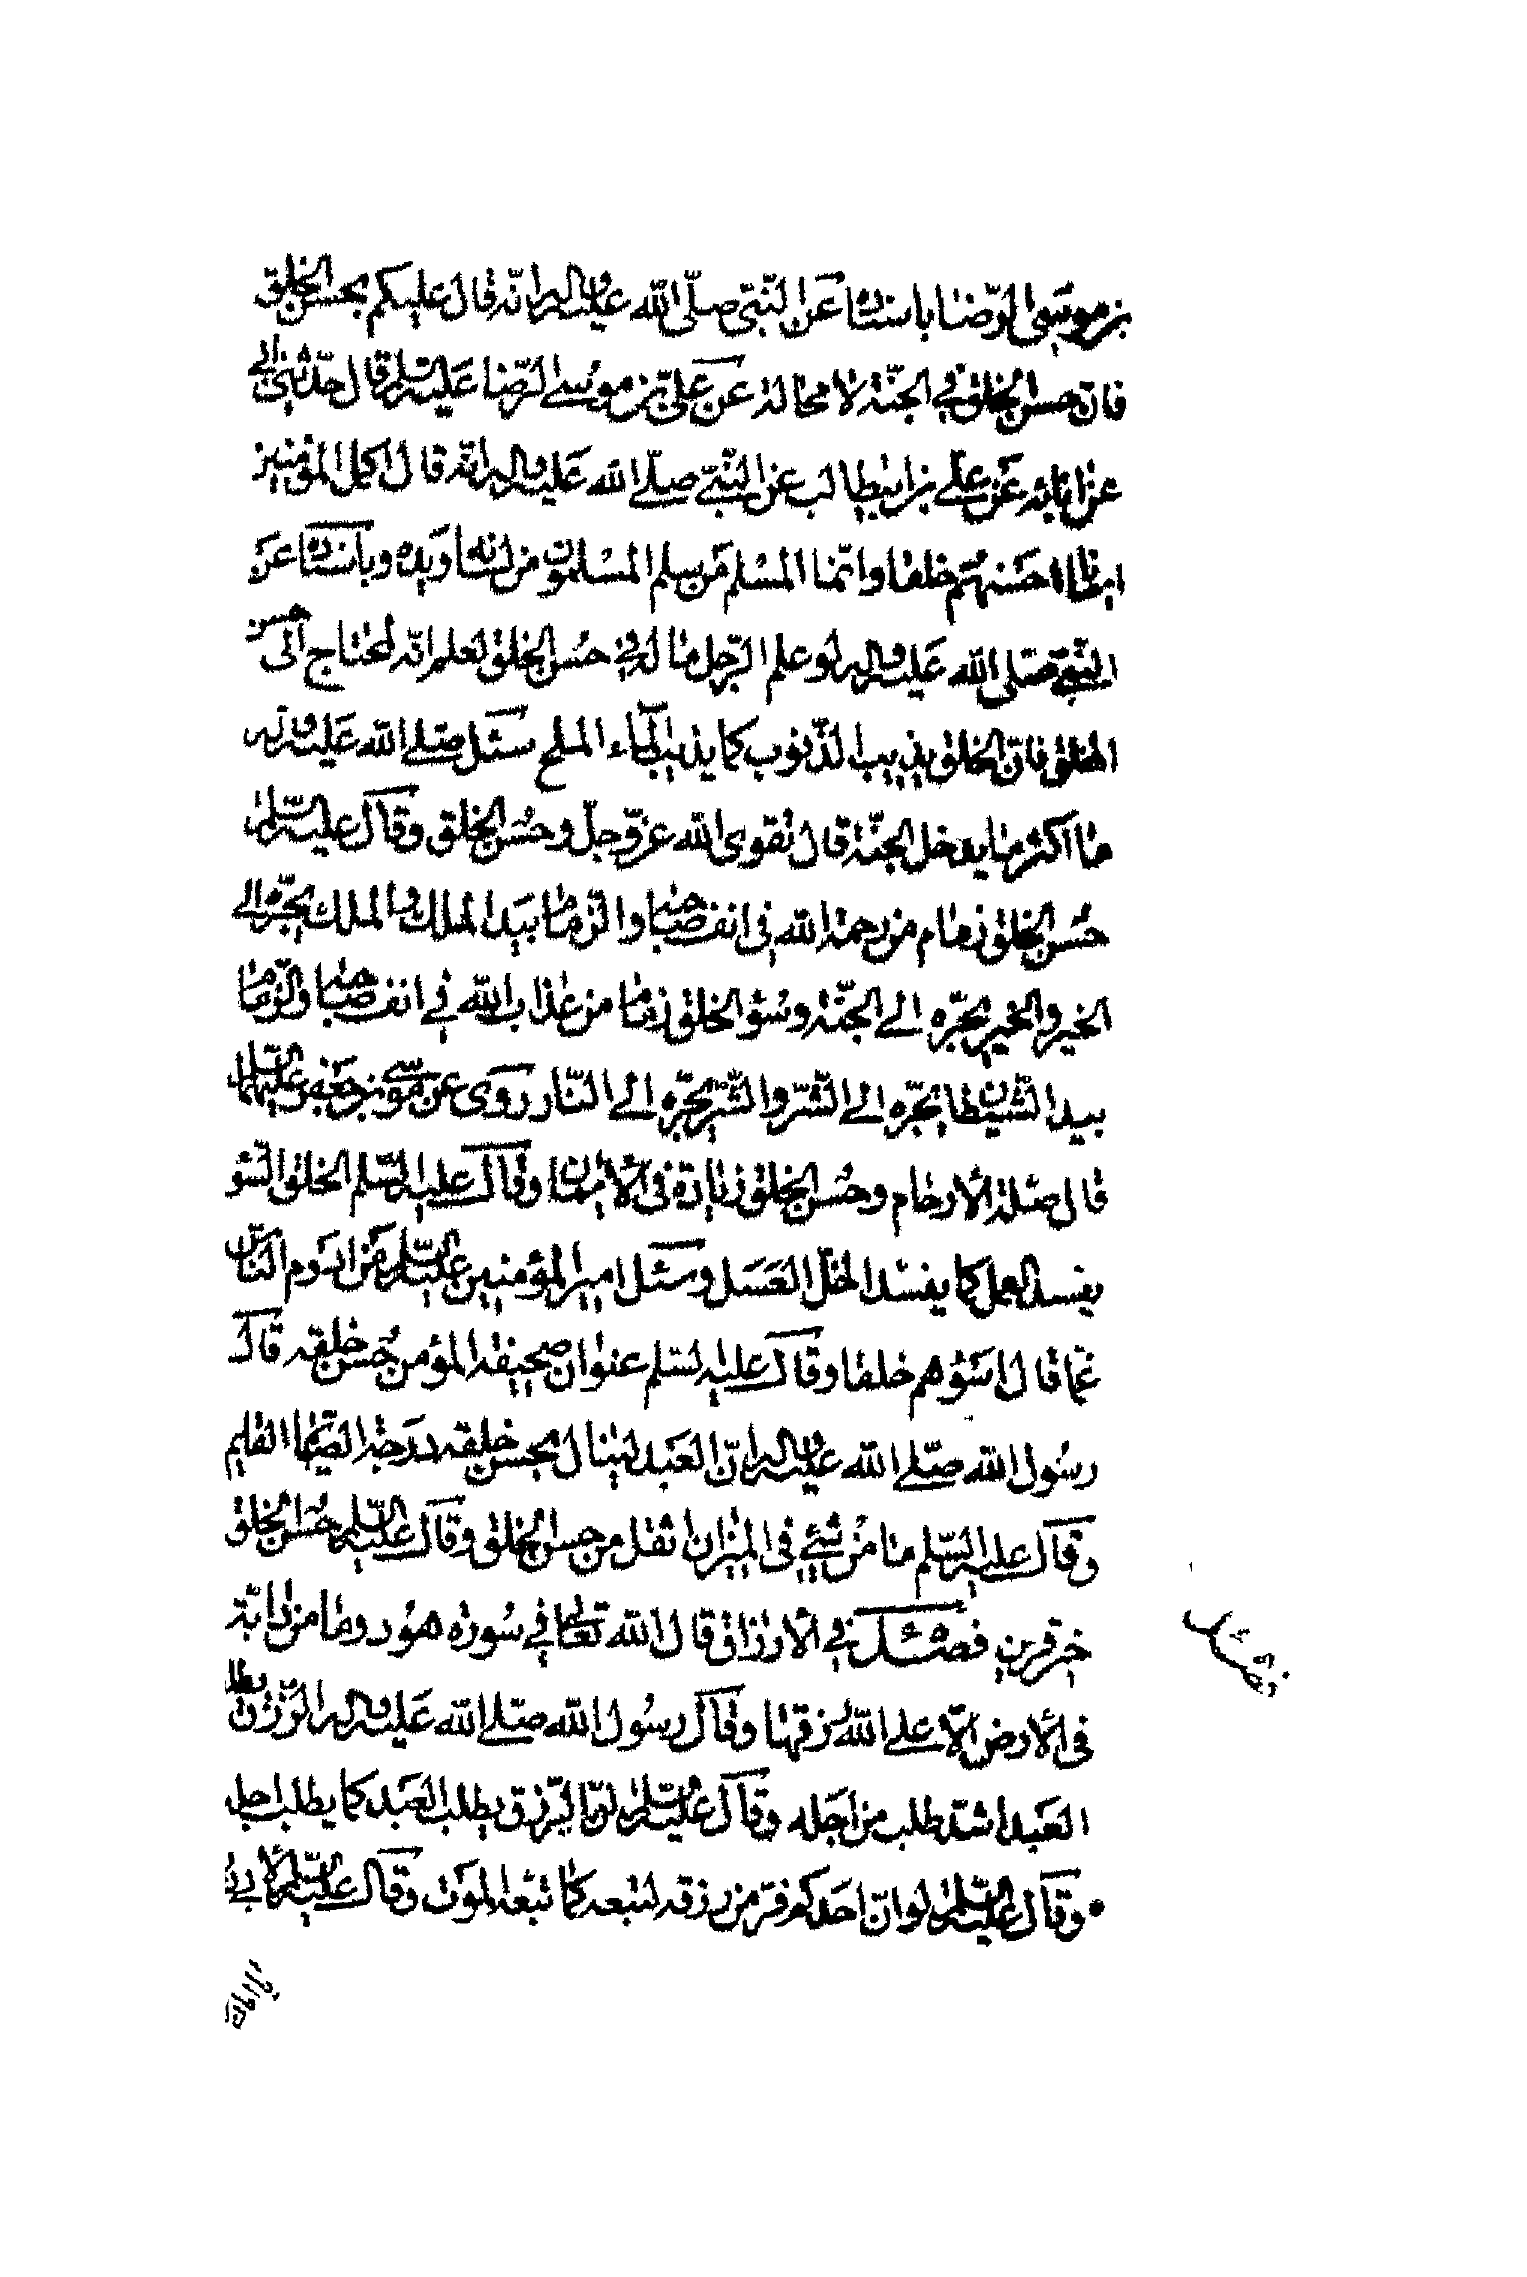 بن موسى الرضا باسناده عن النبي صلى الله عليه واله انه قال عليكم بحسن الخلق
فان حسن الخلق في الجنة لا محالة عن علي بن موسى الرضا عليه السلم قال حدثني ابي
عن ابائه عن علي بن ابيطالب عن النبي صلى الله عليه واله انه قال اكمل المؤمنين
ايمانا احسنهم خلقا وانما المسلم من سلم المسلمون من لسانه ويده وباسناده عن
النبي صلى الله عليه واله لو علم الرجل ما له في حسن الخلق لعلم انه لمحتاج الى حسن
الخلق فان الخلق يذيب الذنوب كما يذيب الماء الملح سئل صلى الله عليه واله
ما اكثر ما يدخل الجنة قال تقوى الله عز وجل وحسن الخلق وقال عليه السلم
حسن الخلق زمام من رحمة الله في انف صاحبه والزمام بيد الملك والملك يجره الى
الخير والخير يجره الى الجنة وسؤ الخلق زمام من عذاب الله في انف صاحبه والزمام
بيد الشيطان يجره الى الشر والشر يجره الى النار روى عن موسى بن جعفر عليهما السلم
قال صلة الأرحام وحسن الخلق زيادة في الأيمان وقال عليه السلم الخلق السؤ
يفسد العمل كما يفسد الخل العسل وسئل امير المؤمنين عليه السلم عن ادوم الناس
غما قال اسؤهم خلقا وقال عليه السلم عنوان صحيفة المؤمن حسن خلقه قال
رسول الله صلى الله عليه واله ان العبد لينال بحسن خلقه درجة الصائم القايم
وقال عليه السلم ما من شيء في الميزان اثقل من حسن الخلق وقال عليه السلم حسن الخلق
خير قرين فصل في الأرزاق قال الله تعالى في سورة هود وما من دابة
في الأرض الا على الله رزقها وقال رسول الله صلى الله عليه واله الرزق يطلب
العبد اشد طلب من اجله وقال عليه السلم الرزق يطلب العبد كما يطلبه اجله
وقال عليه السلم لو ان احدكم فر من رزقه لتبعه كما تبعه الموت وقال عليه السلم لأبي ذر